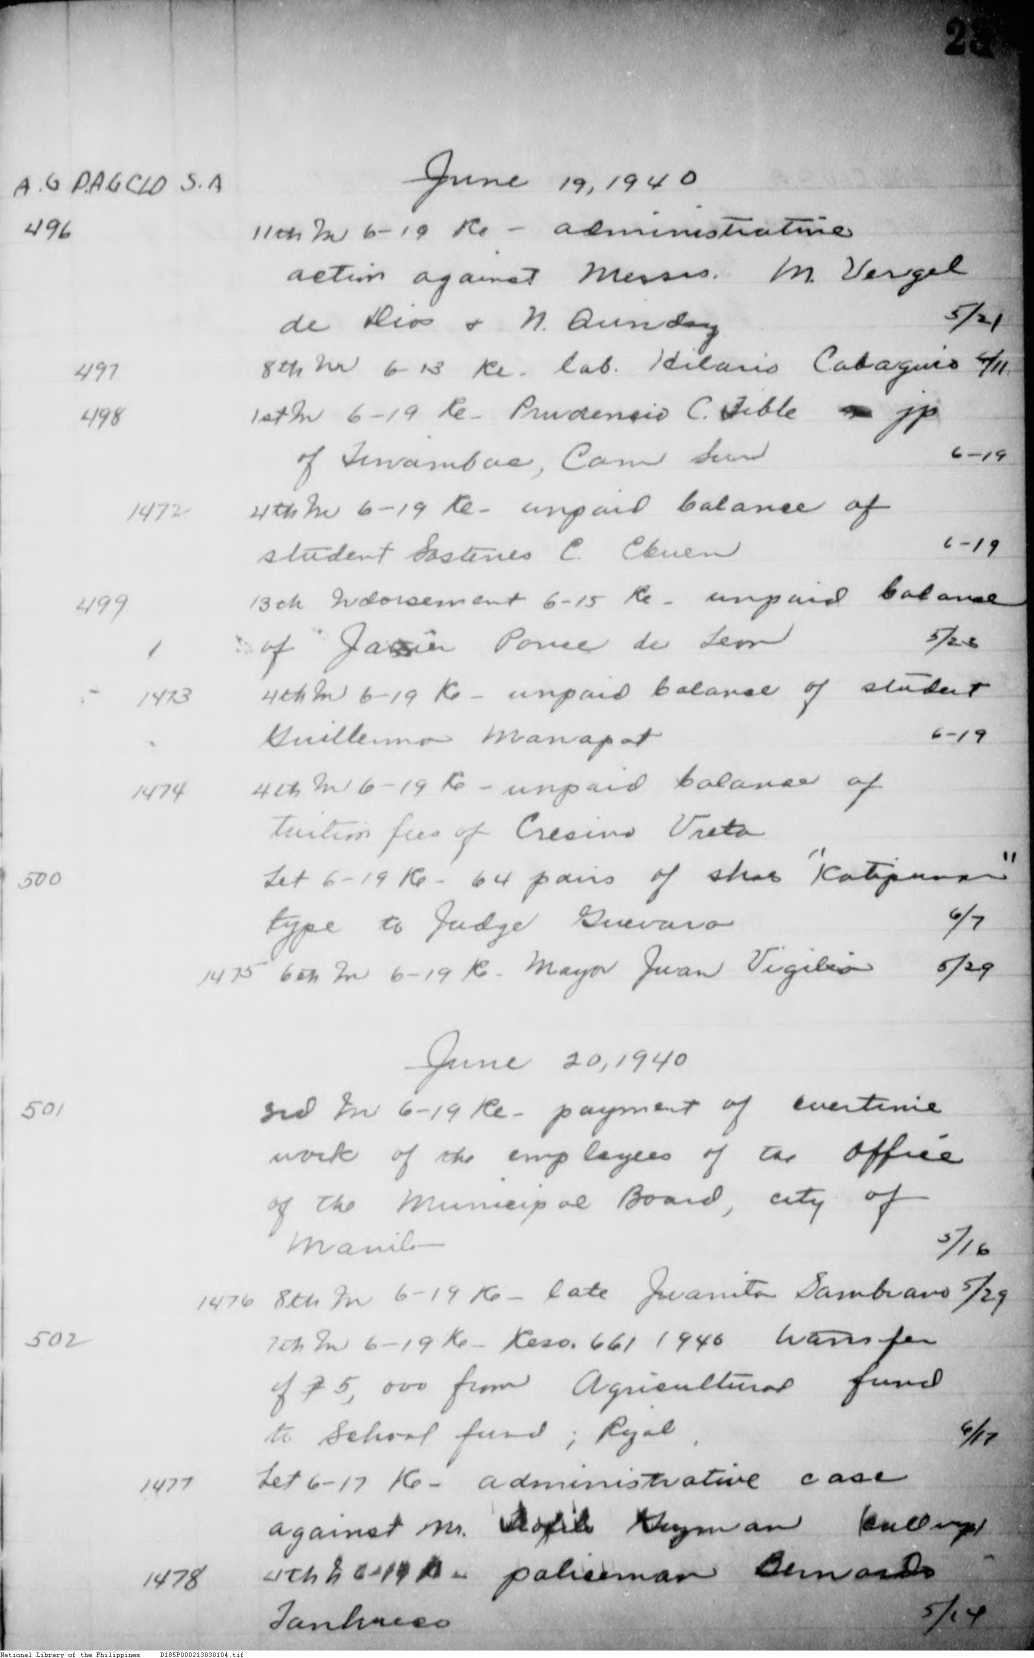 A.G P.AGCLD S.A June 19, 1940
496 11th In 6-19 Re - administrative
action against Messrs. M. Vergel
de Dios & N. 5/21
497 8th In 6-13 Re. lab. Hilario Cabaguio 4/11
498 1st In 6-19 Re- Prudencio C. jp
of Tinambac, Cam Sur 6-19
1472 4th In 6-19 Re- unpaid balance of
student Sostenes C. 6-19
499 13th Indorsement 6-15 Re- unpaid balance
1 of Javier Ponce de Leon
1473 4th In 6-19 Re- unpaid balance of student
Guillermo Manapat 6-19
1474 4th In 6-19 Re- unpaid balance of
tuition fees of Cresino Vreta
500 Let 6-19 Re- 64 pairs of shoes "Katipunan"
type to Judge Guevara 6/7
1475 6th In 6-19 Re. Mayor Juan Vigilia 5/29
June 20, 1940
501 3rd In 6-19 Re- payment of overtime
work of the employees of the Office
of the Municipal Board, city of
Manila 5/16
1476 8th In 6-19 Re- late Juanita Sambrano 5/29
502 7th In 6-19 Re- Reso. 661 1940 transfer
of ₱5,000 from Agricultural fund
to School fund; Rizal. 6/17
1477 Let 6-17 Re- administrative case
against Mr. Guzman
1478 4th In 6-19 Re- policeman Bernardo
Tanhueco 5/14
National Library of the Philippines D185P000213830104.tif